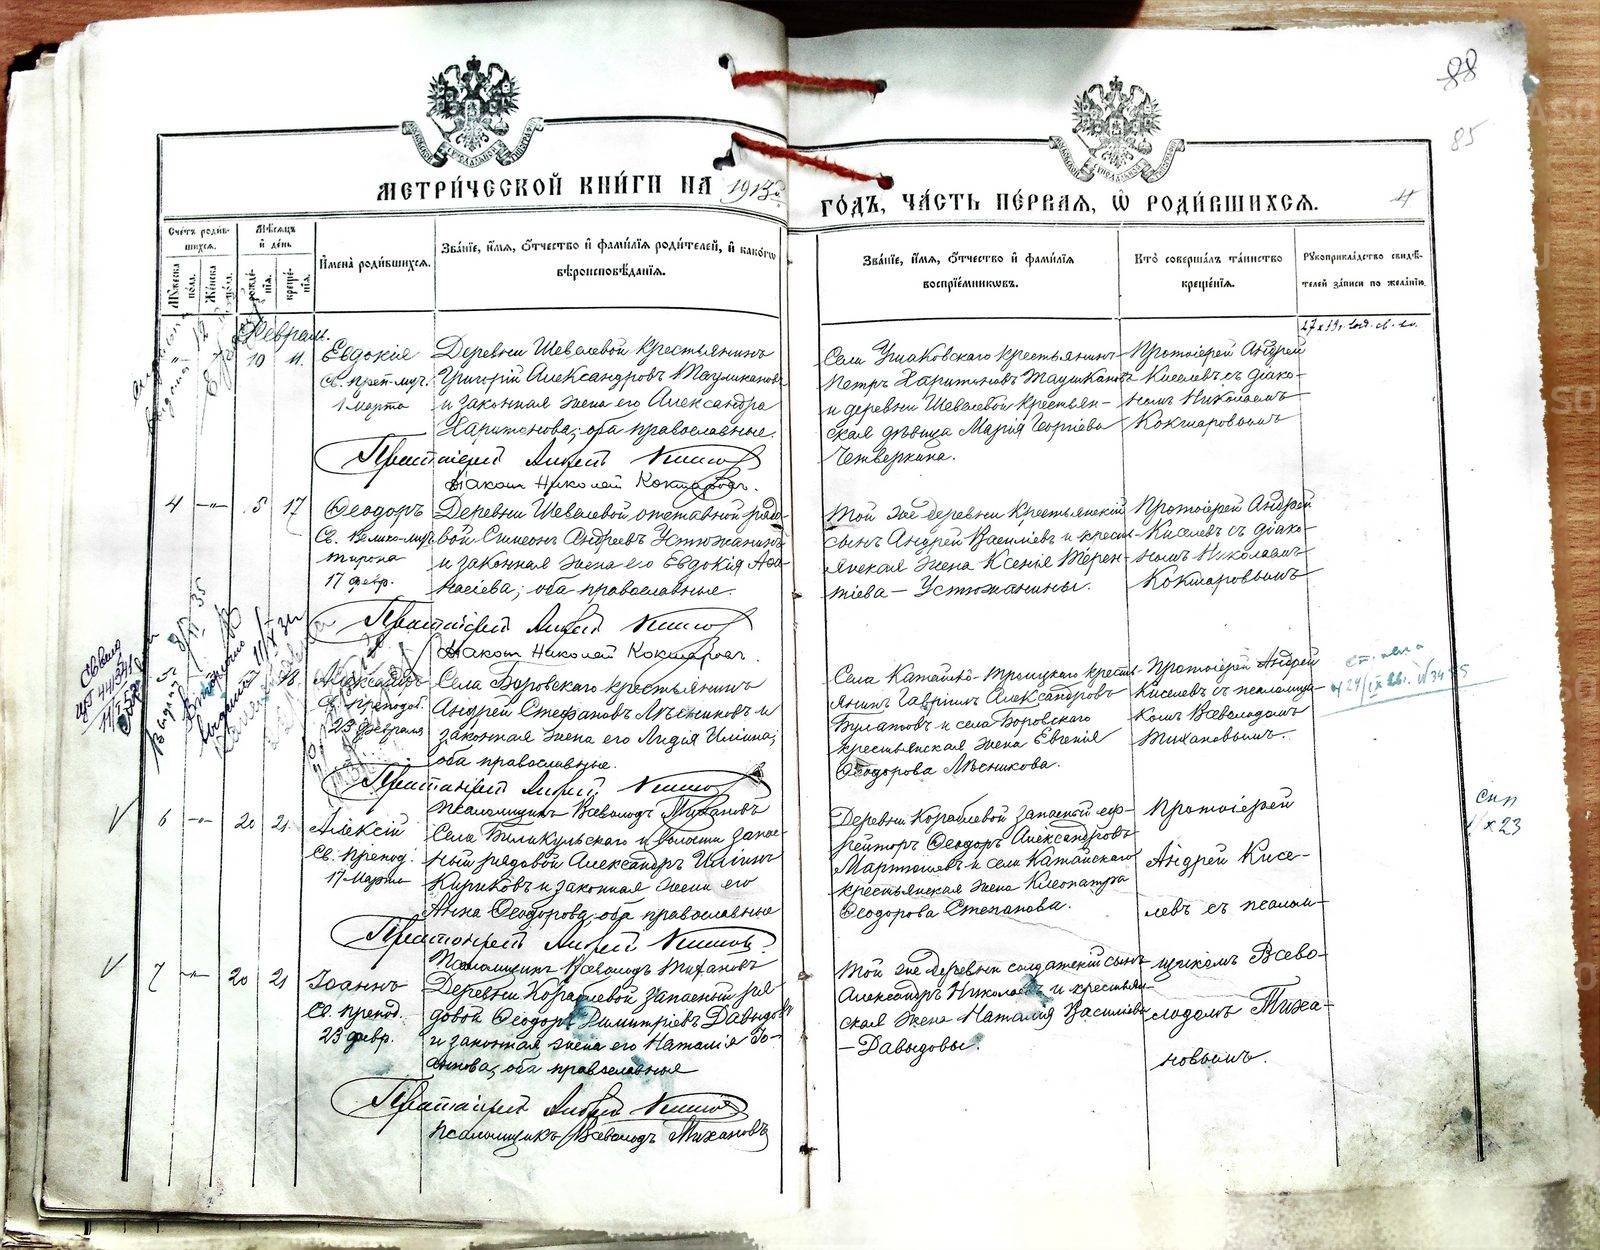 88
85
МЕТРИ́ЧЕСКОЙ КНИ́ГИ НА 1913й
ГО́ДЪ, ЧА́СТЬ ПЕ́РВАЯ, Ѡ РОДИ́ВШИХСЯ.
4
Сче́тъ роди́в-
шихся.
Му́жеска
по́ла.
Же́нска
по́ла.
Мѣ́сяцъ
и́ де́нь
рожде́-
нія.
креще́-
нія.
И́мена̀ роди́вшихся.
Зва́ніе, и́мя, ѻ́тчество и́ фами́лія роди́телей, и́ како́гѡ
вѣроисповѣ́данія.
Зва́ніе, и́мя, ѻ́тчество и́ фами́лія
воспріе́мникѡвъ.
Кто̀ соверша́лъ та́инство
креще́нія.
Рукоприкла́дство свидѣ́-
телей за́писи по жела́нію.
Февраль.
10 11.
Евдокія
Св. преп-муч.
1 Марта
Деревни Шевелевой крестьянинъ
Григорій Александровъ Таушкановъ
и законная жена его Александра
Харитонова, оба православные.
Протоіерей Андрей Киселевъ
Діаконъ Николай Кокшаровъ.
Села Ушаковскаго крестьянинъ
Петръ Харитоновъ Таушкановъ
и деревни Шевелевой крестьян-
ская дѣвица Марія Георгіева
Четверкина.
Протоіерей Андрей
Киселевъ съ діако-
номъ Николаемъ
Кокшаровымъ
4 —„— 5 17
Ѳеодоръ
Св. Велико-муч.
тирона
17 февр.
Деревни Шевелевой отставной рядо-
вой Симеонъ Андреевъ Устюжанинъ
и законная жена его Евдокія Аѳа-
насіева; оба православные.
Протоіерей Андрей Киселевъ
Діаконъ Николай Кокшаровъ.
Той же деревни крестьянскій
сынъ Андрей Василіевъ и крестья-
янская жена Ксенья Терен-
тіева — Устюжанины.
Протоіерей Андрей
Киселевъ съ діако-
номъ Николаемъ
Кокшаровымъ
18.
Александръ
Св. преподоб.
23 февраля
Села Боровскаго крестьянинъ
Андрей Стефановъ Лѣсниковъ и
законная жена его Лидія Иліина;
оба православные.
Протоіерей Андрей Киселевъ
псаломщикъ Всеволодъ Тихановъ
Села Катайско-Троицкаго крестья-
янинъ Гавріилъ Александровъ
Булатовъ и села Боровскаго
крестьянская жена Евгенія
Ѳеодорова Лѣсникова.
Протоіерей Андрей
Киселевъ съ псаломщи-
комъ Всеволодомъ
Тихановымъ.
6 —„— 20 21
Алексій
Св. Препод.
17 Марта
Села Теликульскаго и волости запас-
ный рядовой Александръ Иліинъ
Кириковъ и законная жена его
Анна Ѳеодорова, оба православные
Протоіерей Андрей Киселевъ
Псаломщикъ Всеволодъ Тихановъ
Деревни Кораблевой запасный еф-
рейторъ Ѳеодоръ Александровъ
Мартюшевъ и села Катайскаго
крестьянская жена Клеопатра
Ѳеодорова Степанова.
Протоіерей
Андрей Кисе-
левъ съ псалом-
7 —„— 20 21
Іоаннъ
Св. препод.
23 февр.
Деревни Кораблевой запасный ря-
довой Ѳеодоръ Димитріевъ Давыдовъ
и законная жена его Наталія Іо-
аннова, оба православные
Протоіерей Андрей Киселевъ
псаломщикъ Всеволодъ Тихановъ
Той же деревни солдатскій сынъ
Александръ Николаевъ и крестьян-
ская жена Наталія Василіева
—Давыдовы.
щикомъ Всево-
лодомъ Тиха-
новымъ.